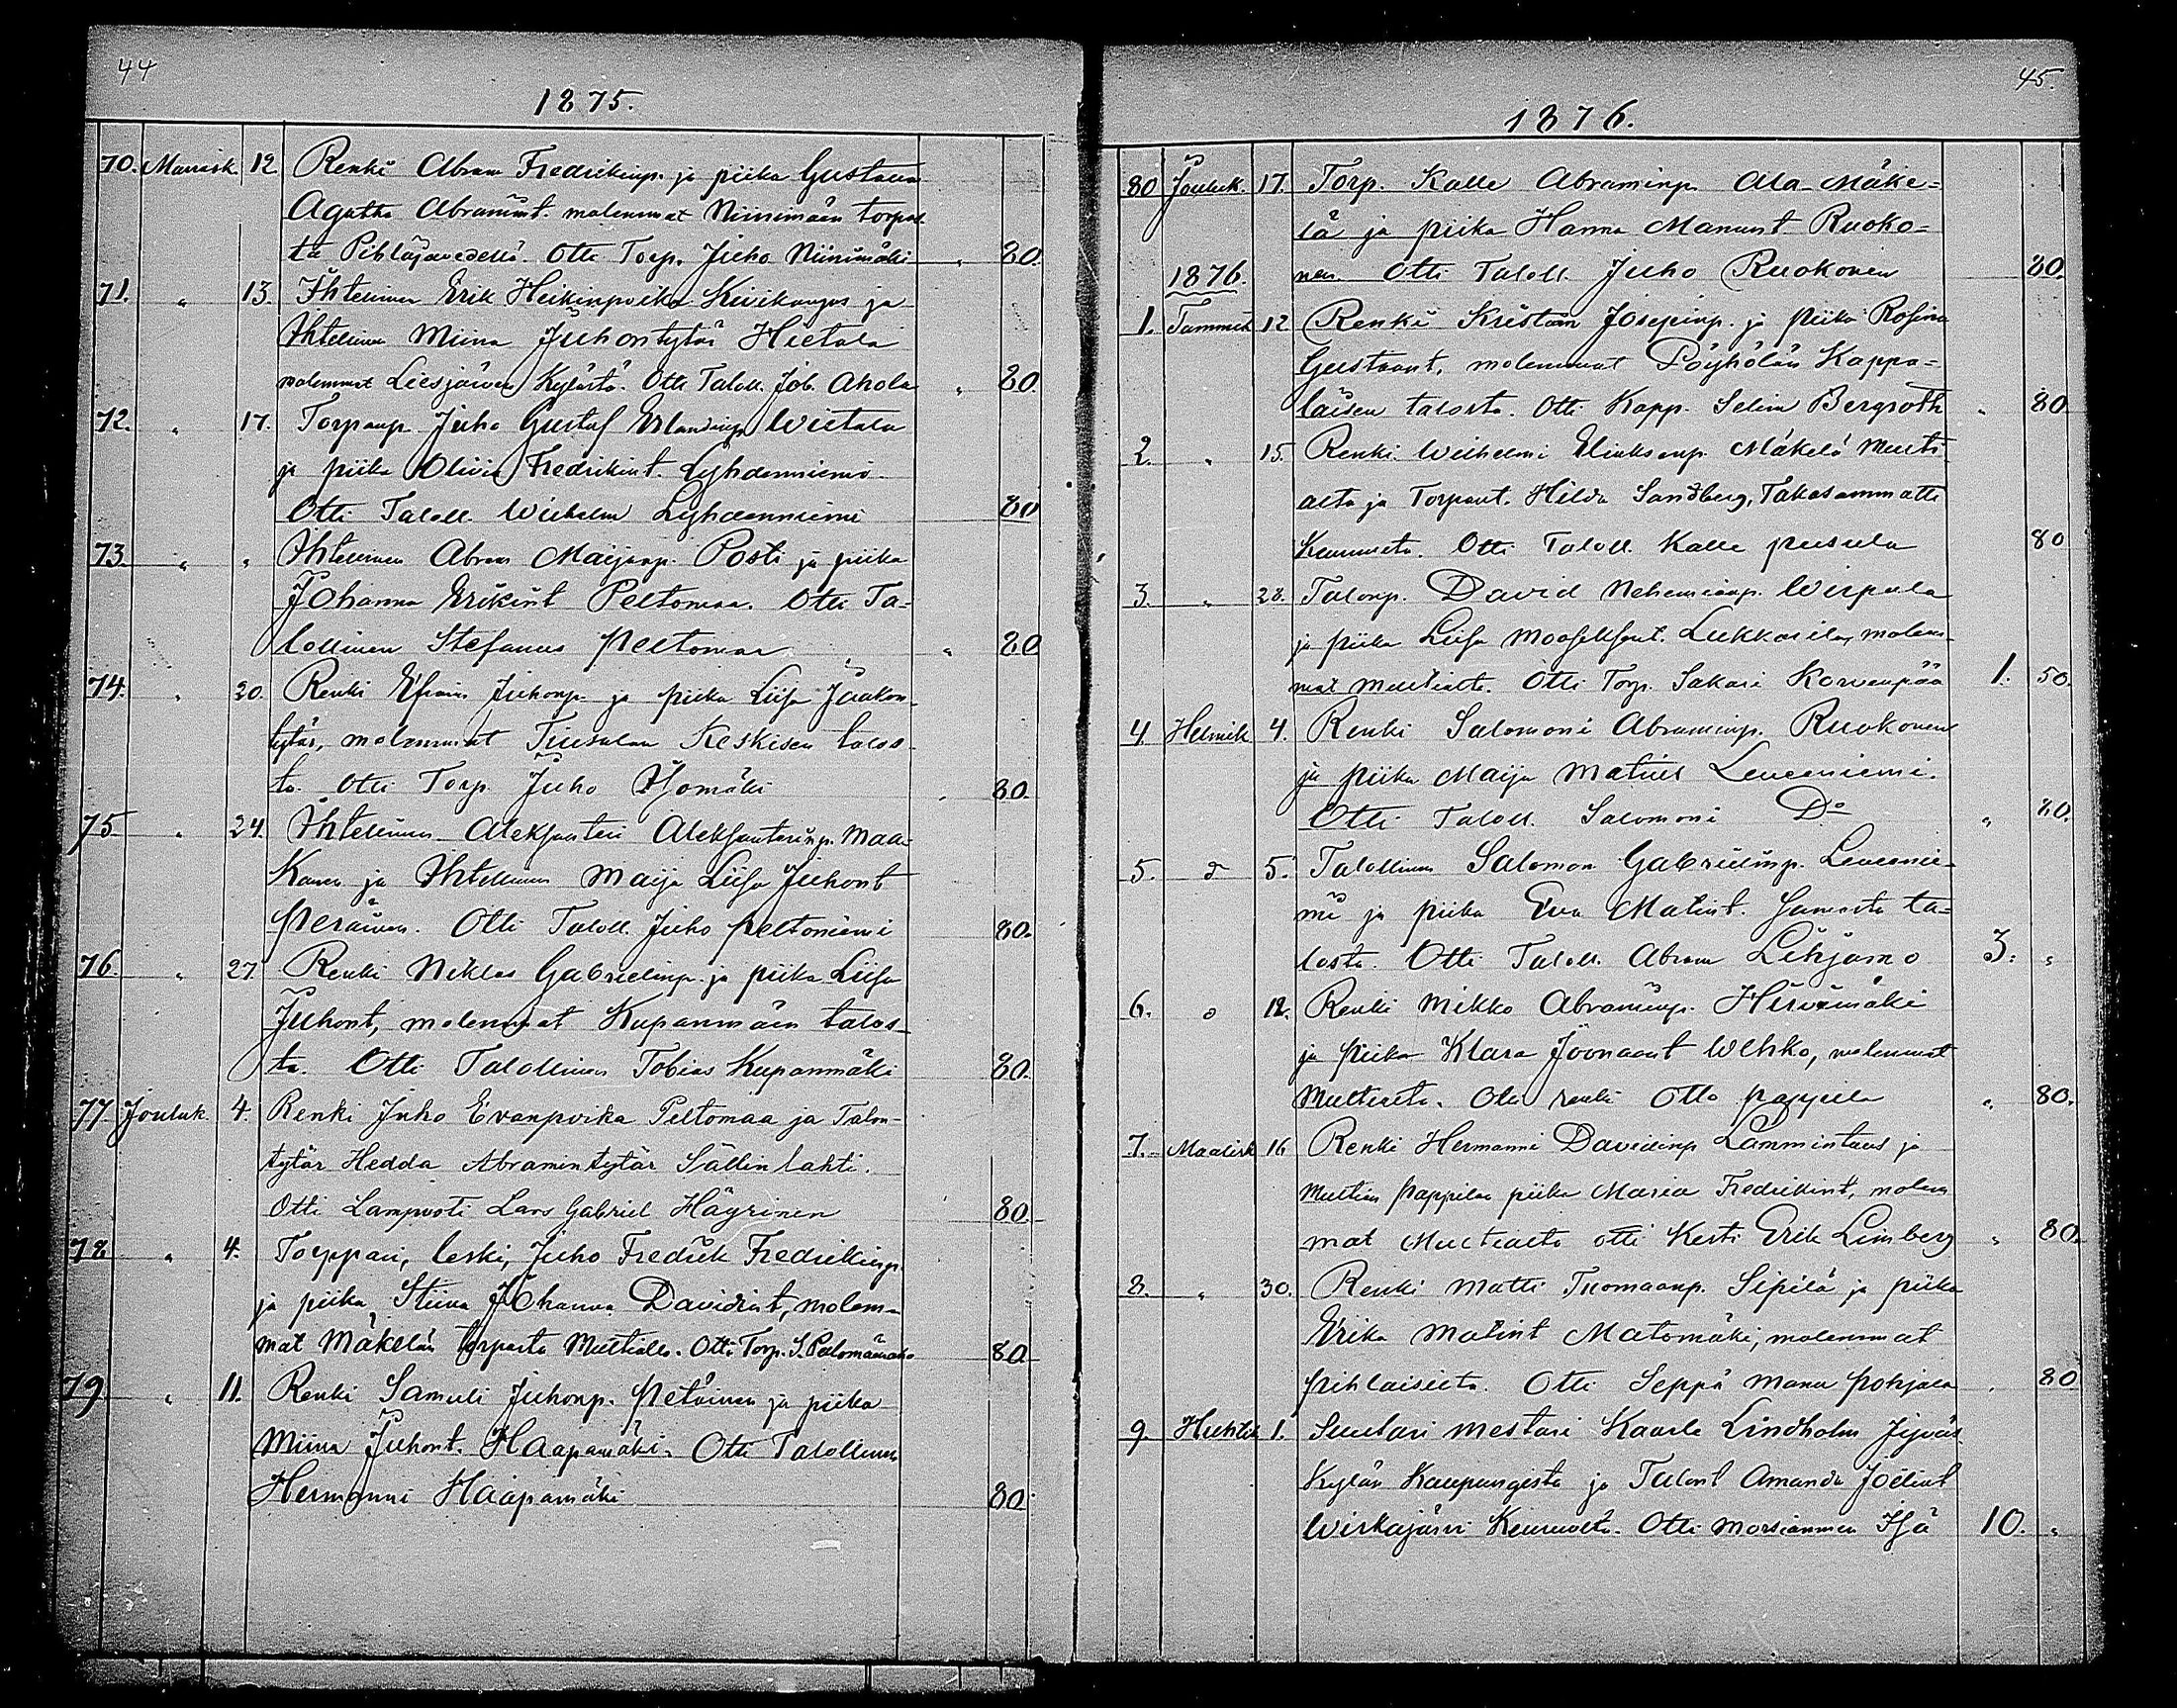 44
1875.
70. Marrask. 12. Renki Abram Fredrikinp. ja piika Gustava
Agatha Abramint. molemmat Niinimäen torpas-
ta Pihlajavedellä. Otti Torp. Juho Niinimäki „ 80.
71. „ 13. Ihtelinen Erik Heikinpoika Kivikangas ja
Ihtelinen Miina Juhontytär Hietala
molemmat Liesjärven Kylästä. Otti Taloll. Job. Ahola „ 80.
72. „ 17. Torpanp. Juho Gustaf Erlandinp. Wietala
ja piika Olivia Fredrikint. Lyhdenniemi
Otti Taloll. Wilhelm Lyhdenniemi 80
73. „ „ Ihtelinen Abram Maijanp. Posti ja piika
Johanna Erikint Peltomaa. Otti Ta-
lollinen Stefanus Peltomaa „ 80
74. „ 20. Renki Efraim Juhonp. ja piika Liisa Jaakon-
tytär, molemmat Tiusalan Keskisen talos-
ta. Otti Torp. Juho Yömäki „ 80.
75 „ 24. Ihtelinen Aleksanteri Aleksanterinp. Maa-
Kanen ja Ihtelinen Maija Liisa Juhont
Peräinen. Otti Taloll. Juho Peltoniemi 80.
76. „ 27. Renki Niklas Gabrielinp. ja piika Liisa
Juhont, molemmat Kupanmäen talos-
ta. Otti Talollinen Tobias Kupanmäki 80.
77. Jouluk. 4. Renki Juho Evanpoika Peltomaa ja Talon-
tytär Hedda Abramintytär Sällinlahti.
Otti Lampuoti Lars Gabriel Häyrinen 80.
78 „ 4. Torppari, leski, Juho Fredrik Fredrikinp.
ja piika Stiina Johanna Davidint, molem-
mat Mäkelän torpasta Multialla. Otti Torp. S. Palomäen 80
79 „ 11. Renki Samuli Juhonp. Petäinen ja piika
Miina Juhont. Haapamäki. Otti Talollinen
Hermanni Haapamäki 80.
45.
1876.
80 Jouluk. 17. Torp. Kalle Abraminp. Ala-Mäke=
lä ja piika Hanna Manunt Ruoko=
nen. Otti Taloll. Juho Ruokonen 80.
1876.
1. Tammik 12 Renki Kristian Josepinp. ja piika Rosina
Gustaant, molemmat Pöyhölän Kappa=
laisen talosta. Otti Kapp. Selim Bergroth „ 80
2. „ 15. Renki Wilhelmi Eliaksenp. Mäkelä Multi-
alta ja Torpant. Hilda Sandberg, Takasammatti
Keuruulta. Otti Taloll. Kalle Pusula 80
3. „ 28. Talonp. David Nehemianp. Wirpula
ja piika Liisa Mooseksent. Lukkarila, molem-
mat Multialta. Otti Torp. Sakari Korvenpää 1. 50.
4. Helmik 4. Renki Salomoni Abraminp. Ruokonen
ja piika Maija Matint Leveeniemi.
Otti Taloll. Salomoni Do „ 80.
5. „ 5. Talollinen Salomon Gabrielinp. Leveenie-
mi ja piika Eva Matint. Samasta ta=
losta. Otti Taloll. Abram Lihjamo 3. „
6. „ 12. Renki Mikko Abraminp. Hirvimäki
ja piika Klara Joonaant Wehko, molemmat
Multialta. Otti renki Otto Pappila „ 80.
7. Maalisk 16 Renki Hermanni Davidinp Lammintaus ja
Multian Pappilan piika Maria Fredrikint, molem
mat Multialta otti Kesti Erik Limberg „ 80.
8. „ 30. Renki Matti Tuomaanp. Sipilä ja piika
Erika Matint Matomäki, molemmat
Pihlaisista. Otti Seppä Manu Pohjala . 80
9. Huhtik 1. Suutari mestari Kaarle Lindholm Jyväs
Kylän Kaupungista ja Talont Amanda Joelint
Wirkajärvi Keuruulta. Otti Morsiammen Isä 10. „